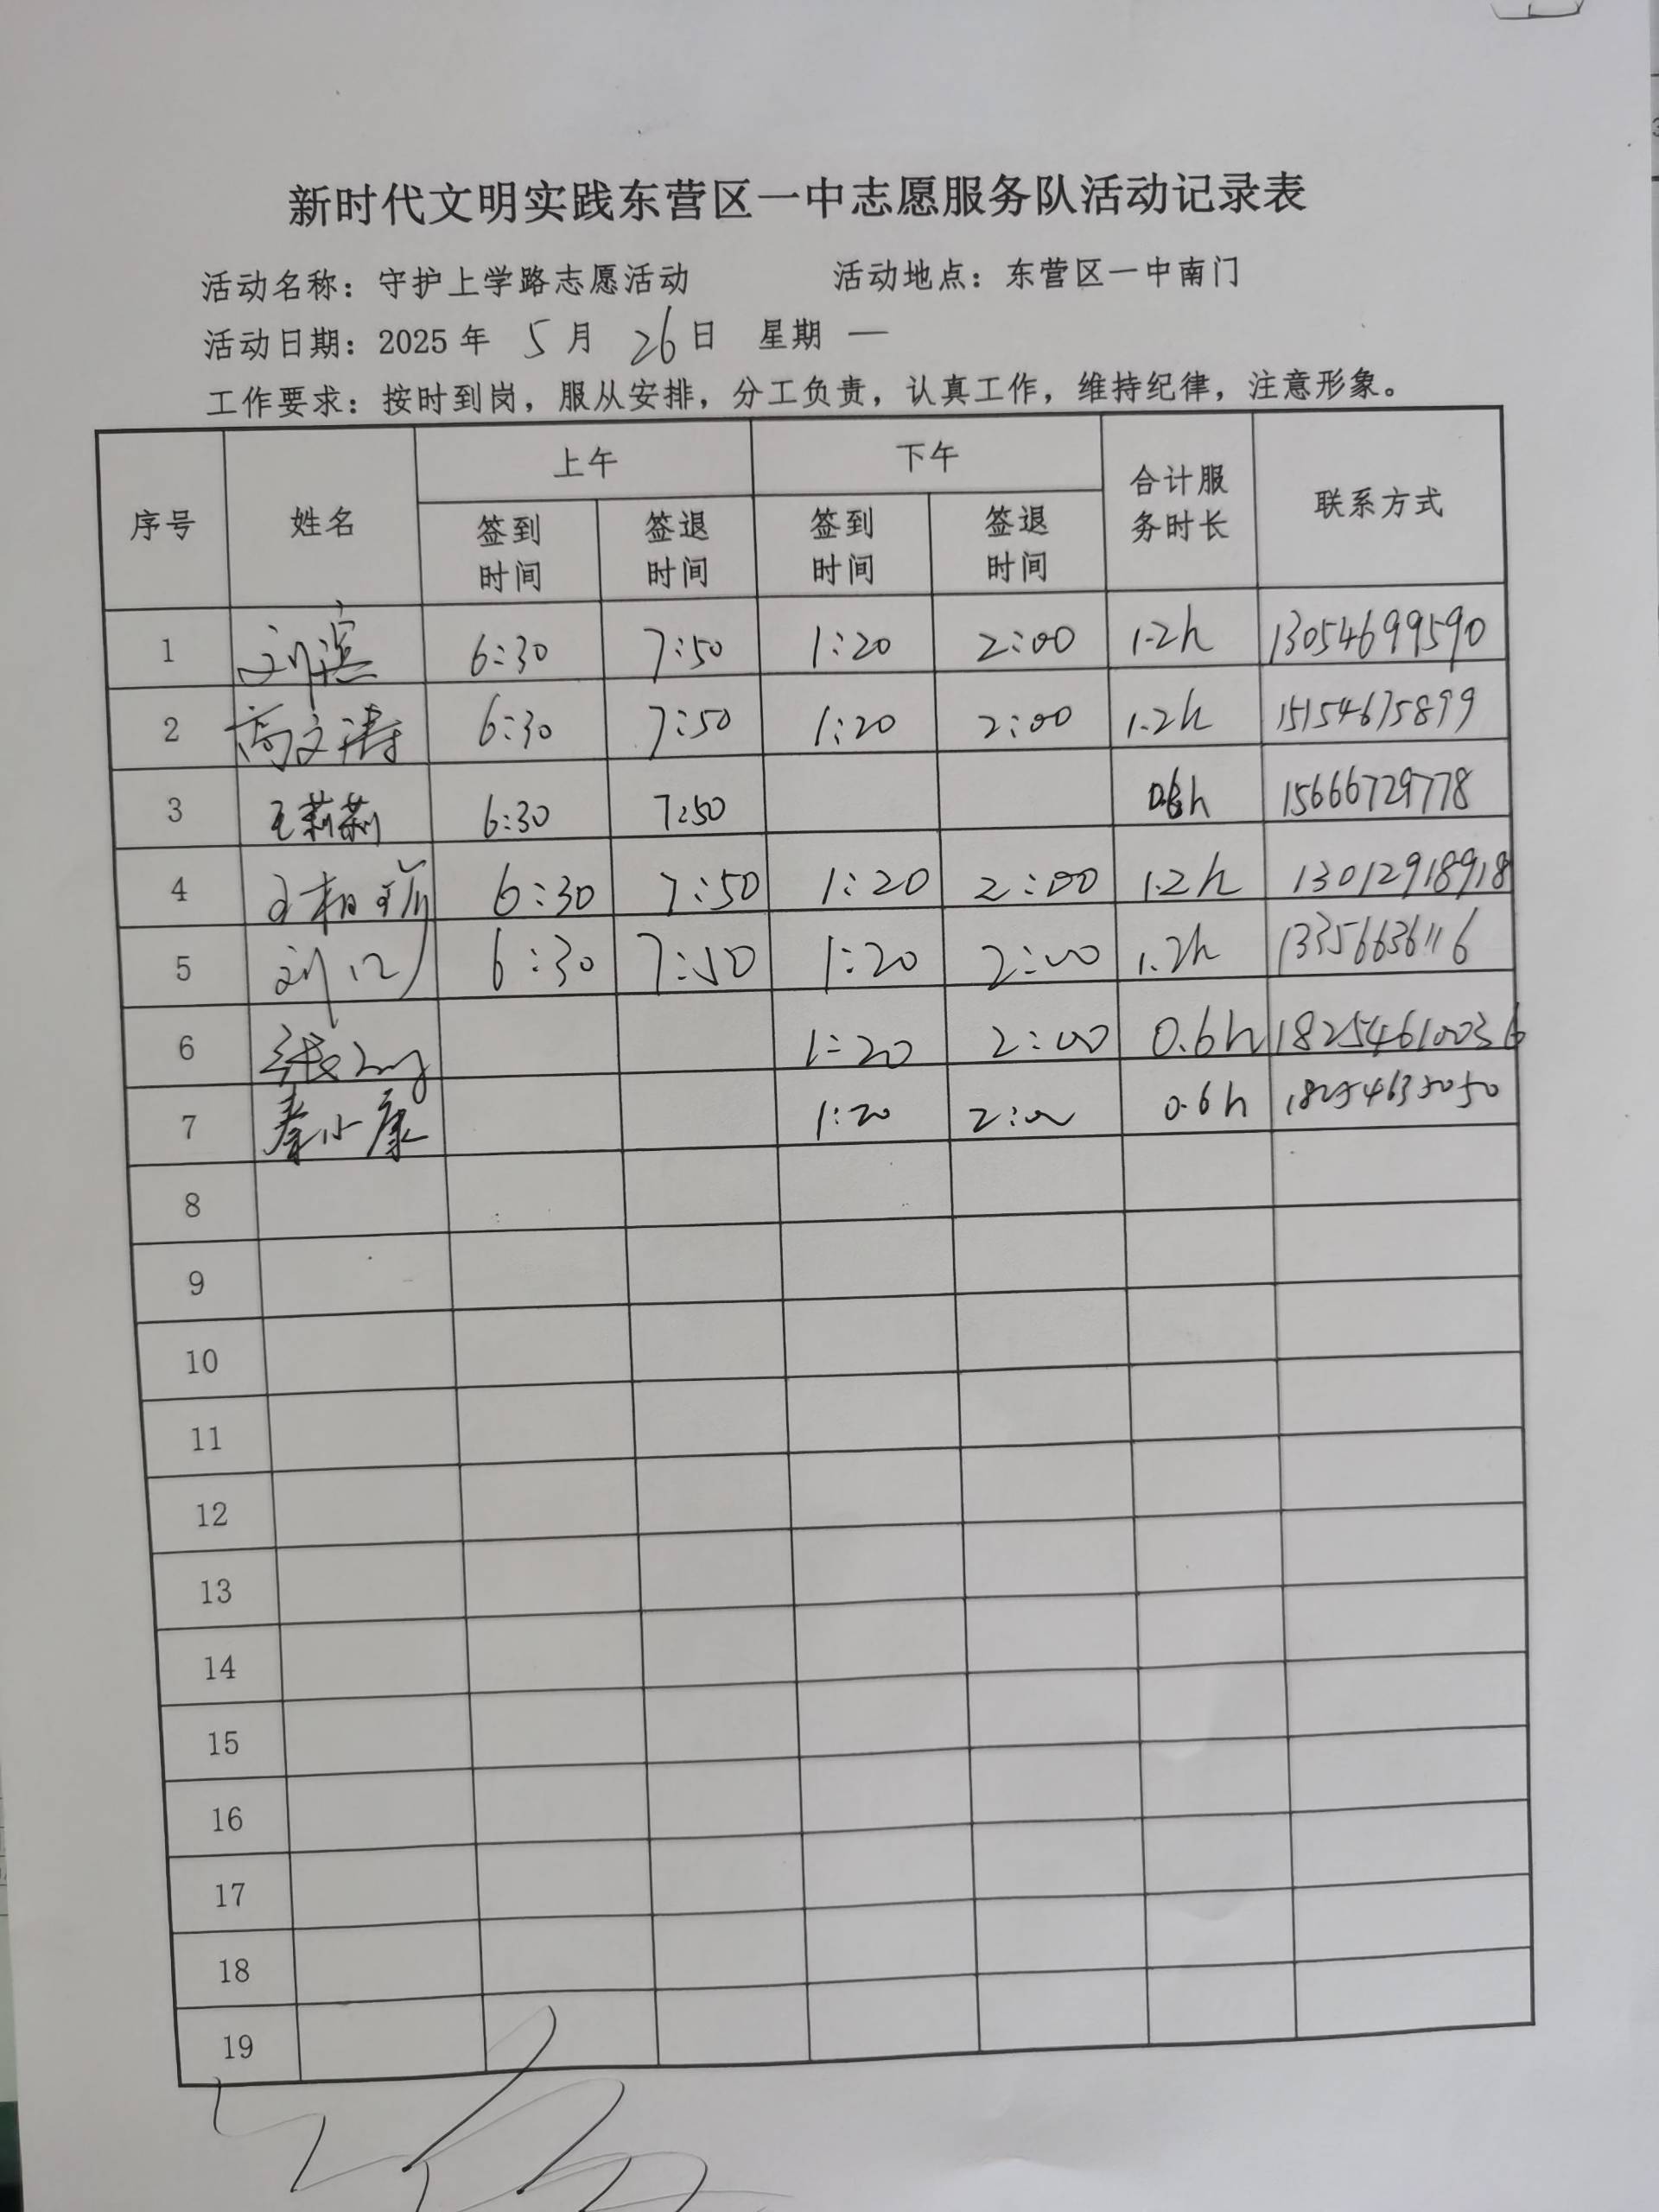 新时代文明实践东营区一中志愿服务队活动记录表
活动名称：守护上学路志愿活动 活动地点：东营区一中南门
活动日期：2025年 5月 26日 星期 一
工作要求：按时到岗，服从安排，分工负责，认真工作，维持纪律，注意形象。
序号 姓名 上午 下午 合计服务时长 联系方式
签到时间 签退时间 签到时间 签退时间
1 刘滨 6:30 7:50 1:20 2:00 1.2h 13054699590
2 高文涛 6:30 7:50 1:20 2:00 1.2h 15154675899
3 王莉莉 6:30 7:50 0.6h 15666729778
4 6:30 7:50 1:20 2:00 1.2h 13012918918
5 6:30 7:50 1:20 2:00 1.2h 13356636116
6 1:20 2:00 0.6h 18254610036
7 秦小康 1:20 2:00 0.6h 18254635050
8
9
10
11
12
13
14
15
16
17
18
19